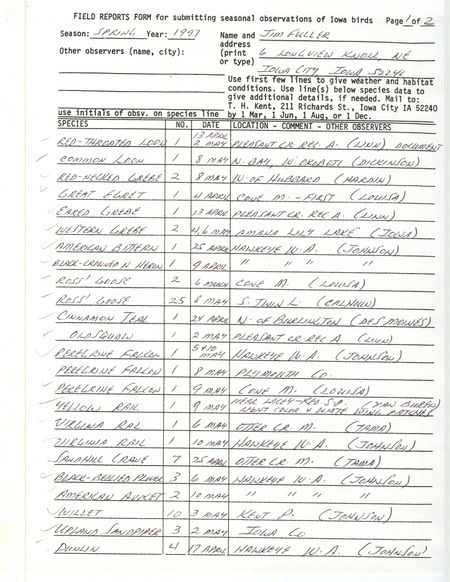 FIELD REPORTS FORM for submitting seasonal observations of Iowa birds Page 1 of 2
Season: SPRING Year: 1997 Name and JIM FULLER
address
Other observers (name, city): (print 6 LONGVIEW KNOLL, NE
or type) IOWA CITY IOWA 52240
Use first few lines to give weather and habitat
conditions. Use line(s) below species data to
give additional details, if needed. Mail to:
T. H. Kent, 211 Richards St., Iowa City IA 52240
use initials of obsv. on species line by 1 Mar, 1 Jun, 1 Aug, or 1 Dec.
SPECIES NO. DATE LOCATION - COMMENT - OTHER OBSERVERS
13 APRIL
RED-THROATED LOON 1 2 MAY PLEASANT CR. REC A. (LINN) DOCUMENT
COMMON LOON 1 8 MAY N. BAY, W. OKOBOJI (DICKINSON)
RED-NECKED GREBE 2 8 MAY W. OF HUBBARD (HARDIN)
GREAT EGRET 1 4 APRIL CONE M. - FIRST (LOUISA)
EARED GREBE 1 13 APRIL PLEASANT CR. REC A. (LINN)
WESTERN GREBE 2 4,6 MAY AMANA LILY LAKE (IOWA)
AMERICAN BITTERN 1 25 APRIL HAWKEYE W.A. (JOHNSON)
BLACK-CROWNED N HERON 1 9 APRIL " " " "
ROSS' GOOSE 2 6 MARCH CONE M. (LOUISA)
ROSS' GOOSE 25 8 MAY S. TWIN L. (CALHOUN)
CINNAMON TEAL 1 24 APRIL N. OF BURLINGTON (DES MOINES)
OLDSQUAW 1 2 MAY PLEASANT CR REC A (LINN)
5+10
PEREGRINE FALCON 1 MAY HAWKEYE W.A. (JOHNSON)
PEREGRINE FALCON 1 8 MAY PLYMOUTH CO.
PEREGRINE FALCON 1 9 MAY CONE M. (LOUISA)
NEAR LACEY-KEO. S.P. (VAN BUREN)
YELLOW RAIL 1 9 MAY LIGHT COLOR & WHITE WING PATCHES
VIRGINIA RAIL 1 6 MAY OTTER CR. M. (TAMA)
VIRGINIA RAIL 1 10 MAY HAWKEYE W.A. (JOHNSON)
SANDHILL CRANE 7 25 APRIL OTTER CR. M. (TAMA)
BLACK-BELLIED PLOVER 3 6 MAY HAWKEYE W.A. (JOHNSON)
AMERICAN AVOCET 2 10 MAY " " " "
WILLET 10 3 MAY KENT P. (JOHNSON)
UPLAND SANDPIPER 3 2 MAY IOWA CO
DUNLIN 4 17 APRIL HAWKEYE W.A. (JOHNSON)